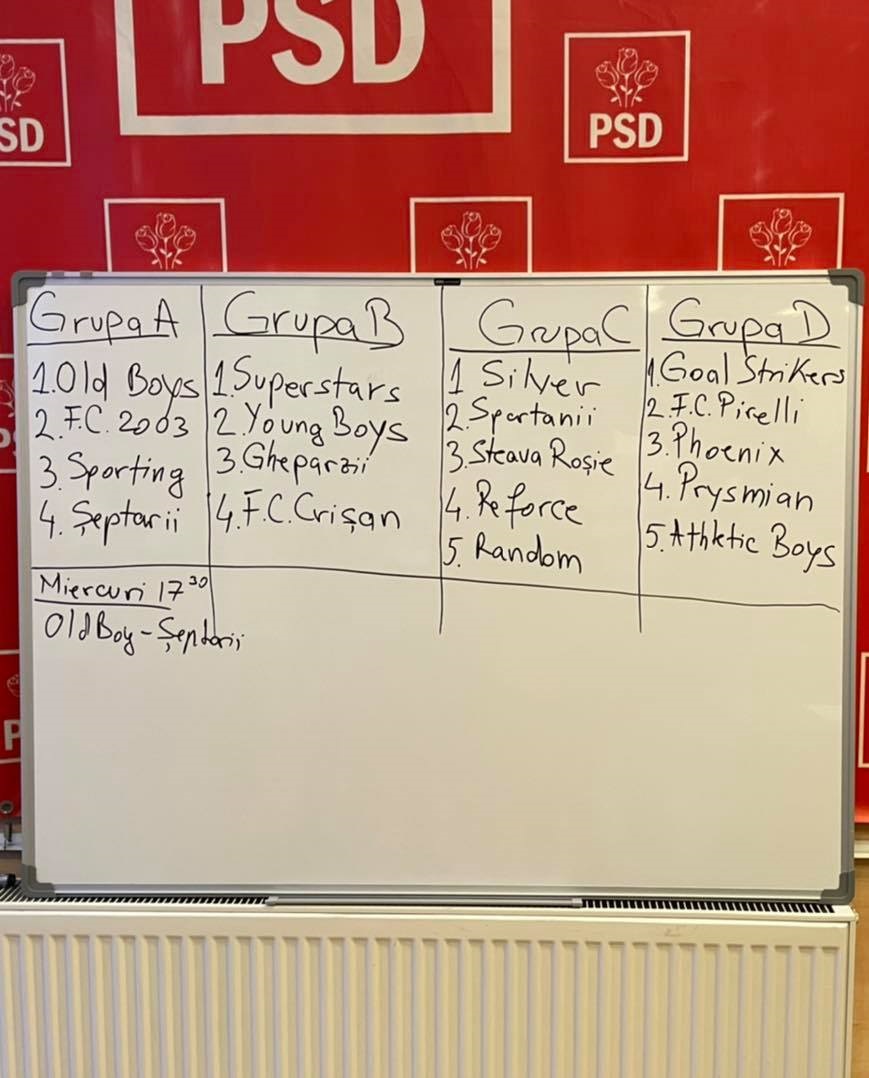 PSD
PSD
SD
Grupa A
1. Old Boys
2. F.C. 2003
3. Sporting
4. Șeptarii
Grupa B
1. Superstars
2. Young Boys
3. Gheparzii
4. F.C. Crișan
Grupa C
1 Silver
2. Spartanii
3. Steaua Roșie
4. Reforce
5. Random
Grupa D
1. Goal Strikers
2. F.C. Pirelli
3. Phoenix
4. Prysmian
5. Athletic Boys
Miercuri 17³⁰
Old Boy - Șeptarii